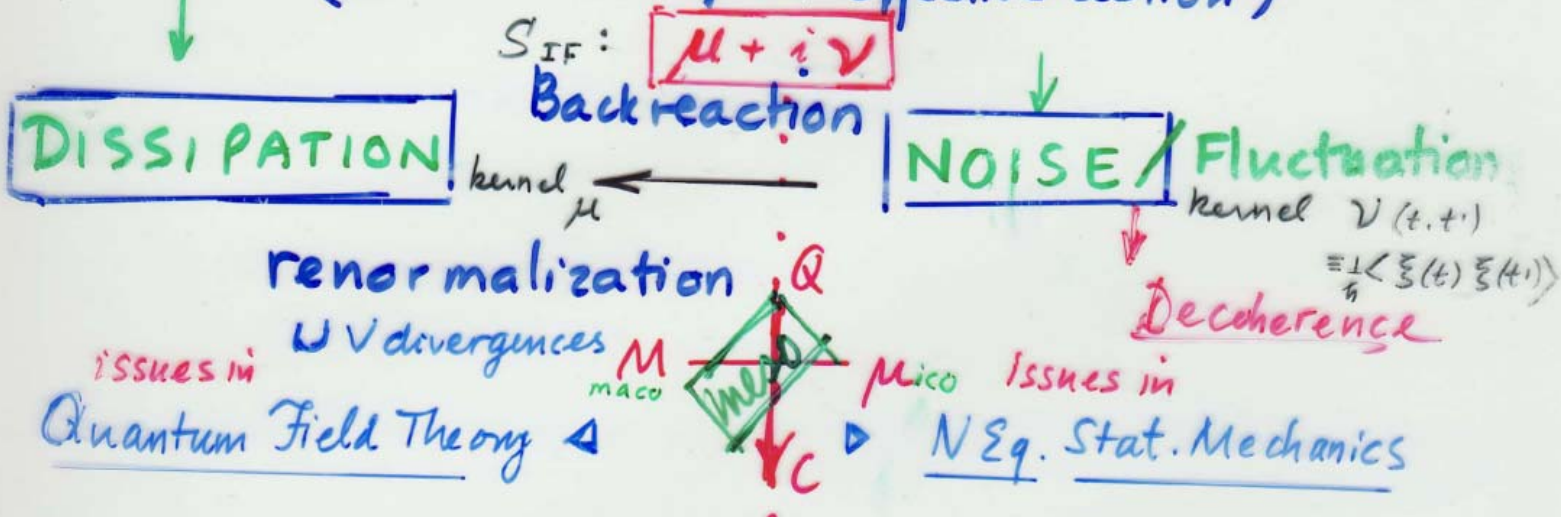 S_IF : μ + i ν
Backreaction
DISSIPATION kernel μ
NOISE / Fluctuation
kernel ν(t,t')
≡ 1/ħ < ξ(t) ξ(t') >
Decoherence
renormalization
UV divergences
Q
M meso μico
maco
C
issues in
Quantum Field Theory
Issues in
NEq. Stat. Mechanics